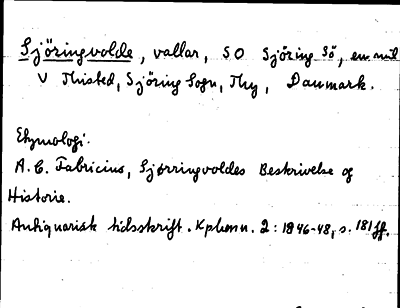 Sjöringvolde, vallar, SO Sjöring Sö, en mil
V Thisted, Sjöring Sogn, Thy, Danmark.
Etymologi.
A. C. Fabricius, Sjørringvoldes Beskrivelse og
Historie.
Antiquarisk tidsskrift. Kphmn. 2: 1846-48, s. 181 ff.